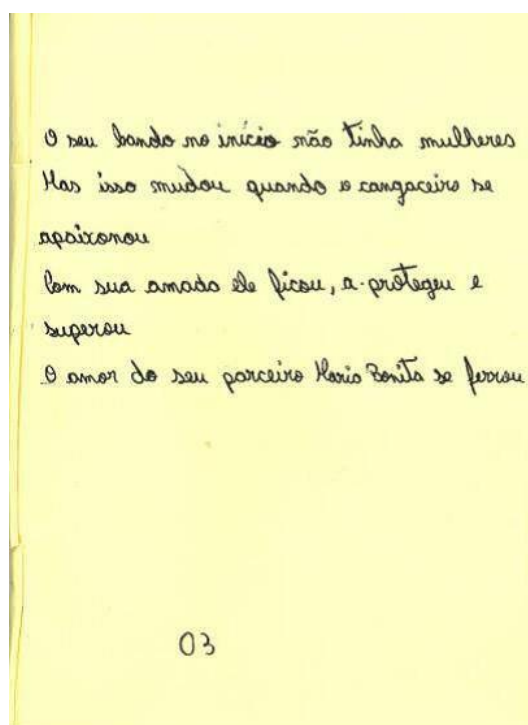 O seu bando no início não tinha mulheres
Mas isso mudou quando o cangaceiro se
apaixonou
Com sua amada ele ficou, a protegeu e
superou
O amor do seu parceiro Maria Bonita se ferrou
03